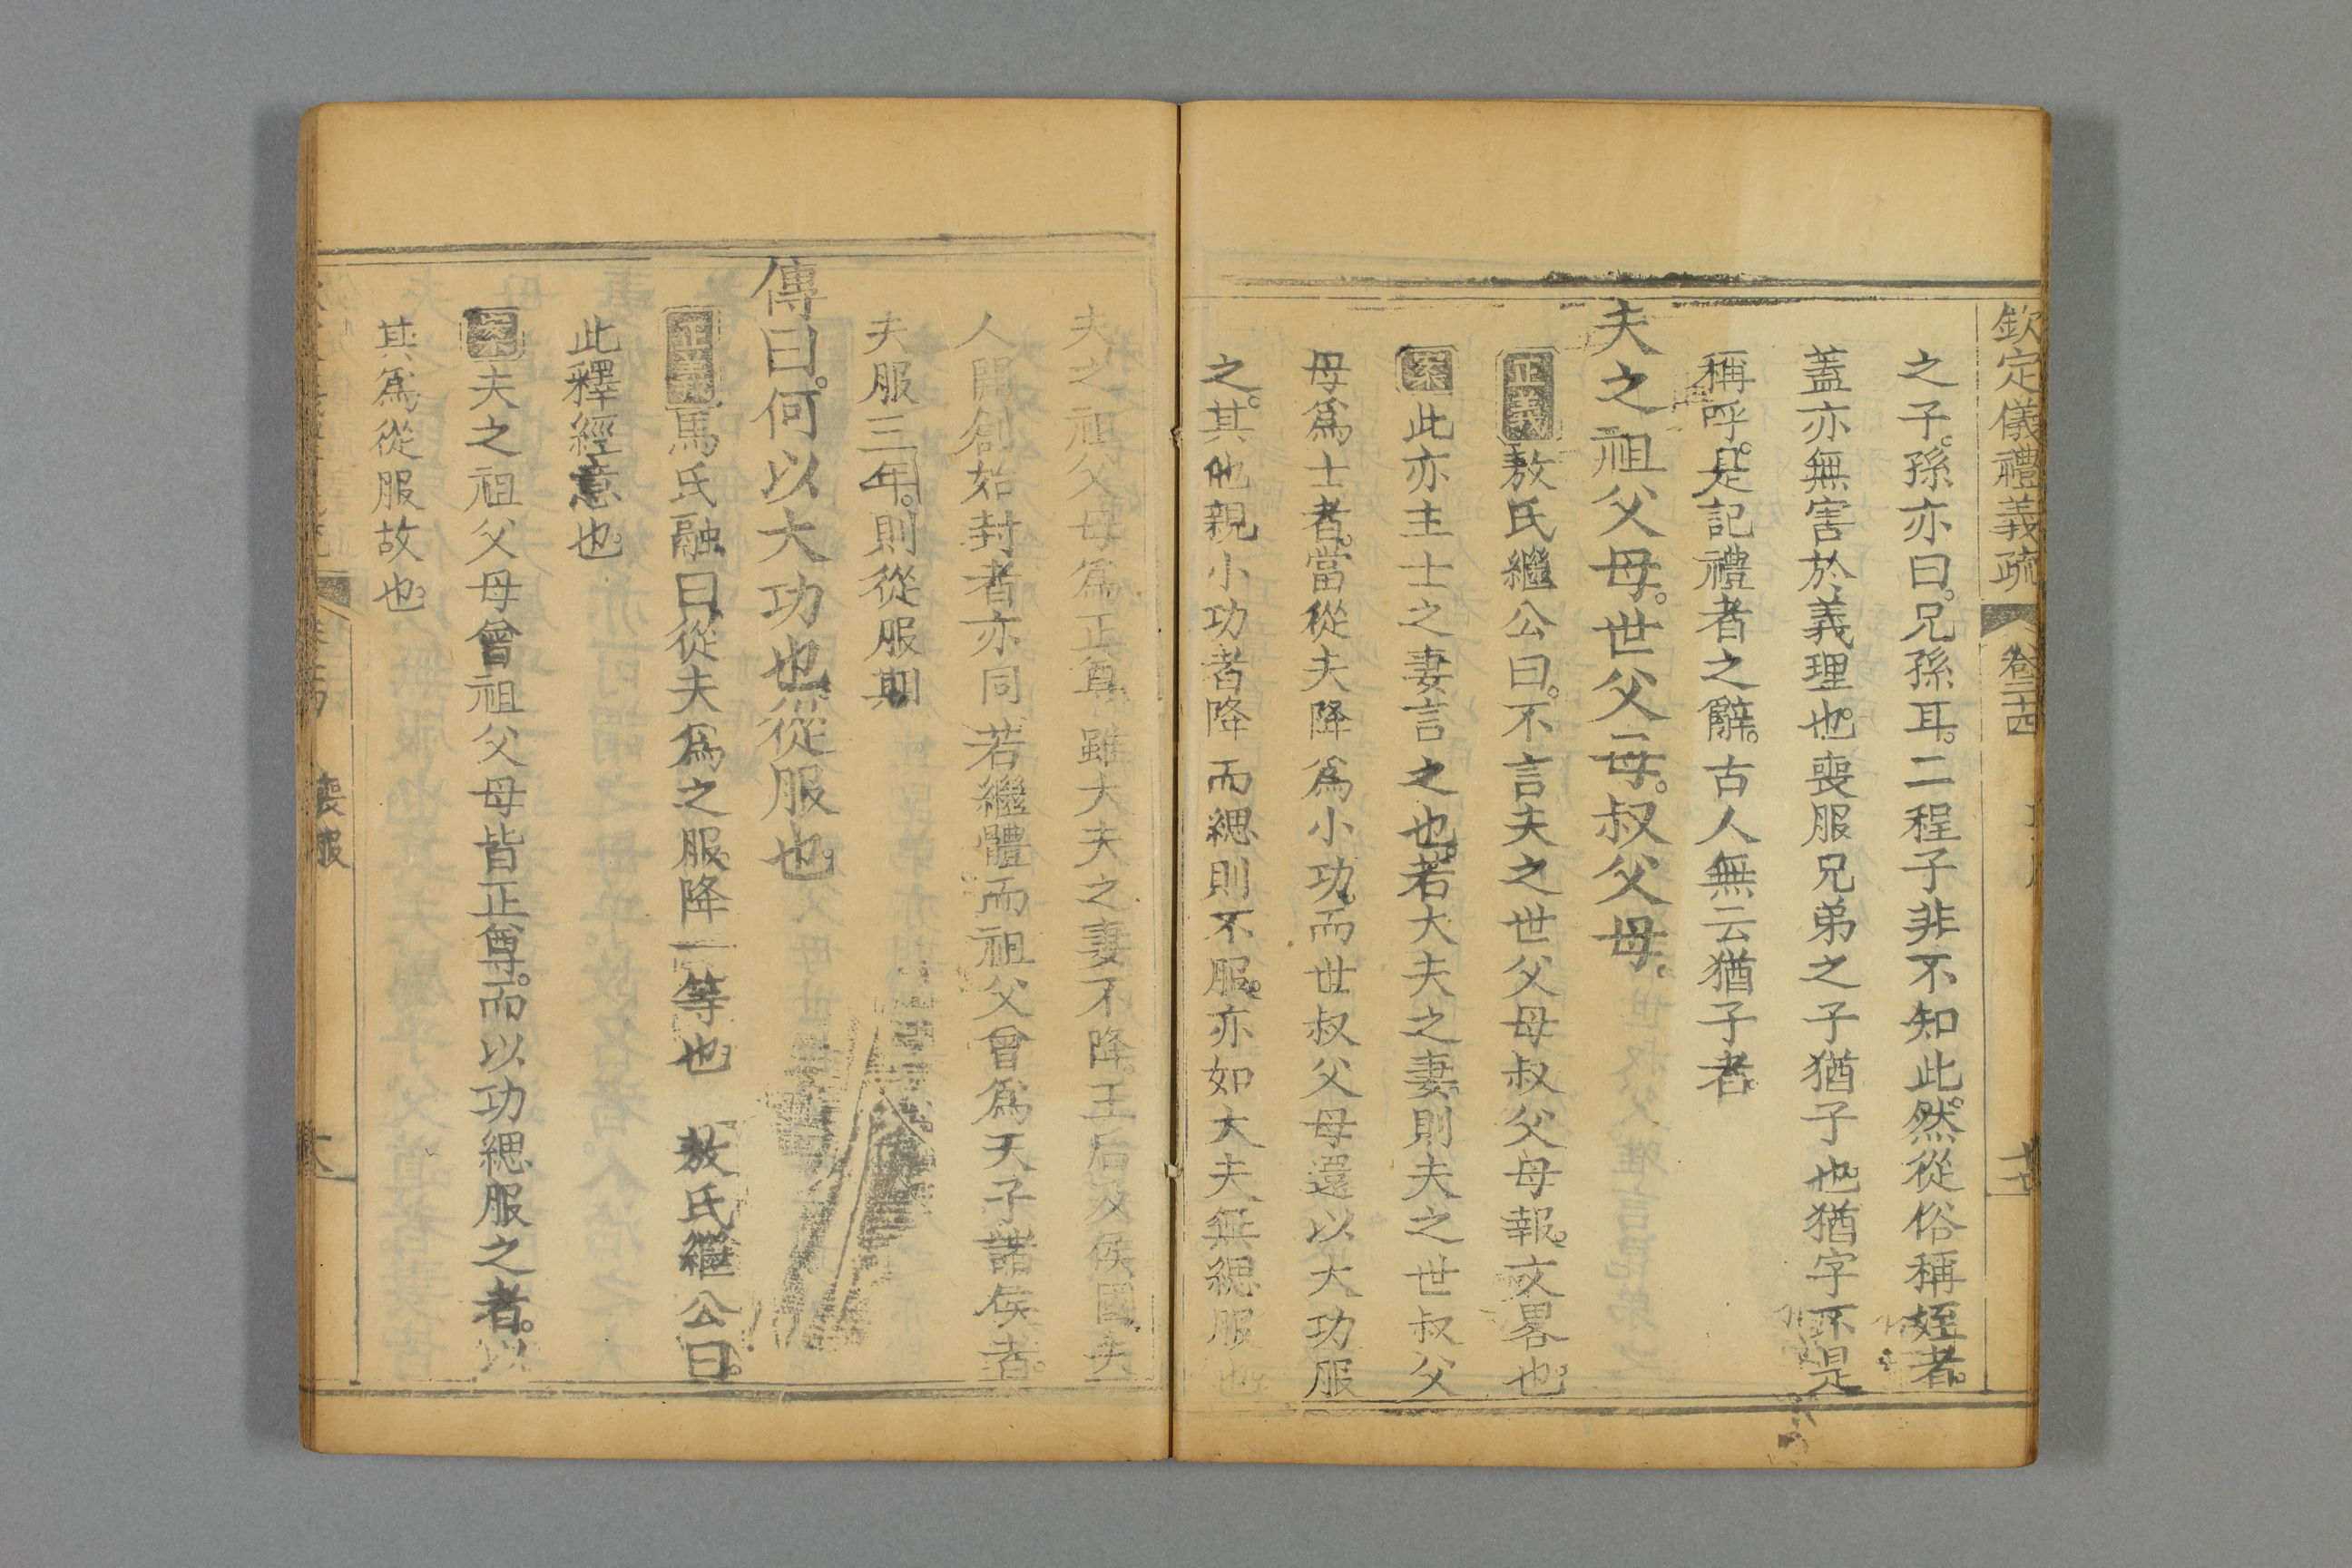 欽定儀禮義疏 卷二十四
之子。孫亦曰。兄孫耳。二程子非不知此。然從俗稱姪者。
蓋亦無害於義理也。喪服兄弟之子猶子也。猶字不是
稱呼。是記禮者之辭。古人無云猶子者。
夫之祖父母。世父母。叔父母。
正義敖氏繼公曰。不言夫之世父母叔父母報。文畧也。
案此亦主士之妻言之也。若大夫之妻。則夫之世叔父
母爲士者。當從夫降爲小功。而世叔父母還以大功服
之。其他親小功者降而緦。則不服。亦如大夫無緦服也
夫之祖父母爲正尊。雖大夫之妻不降。王后及侯國夫
人開創始封者亦同。若繼體而祖父曾爲天子諸侯者。
夫服三年。則從服期
傳曰。何以大功也。從服也。
正義馬氏融曰。從夫爲之服。降一等也。 敖氏繼公曰。
此釋經意也。
案夫之祖父母曾祖父母皆正尊。而以功緦服之者。以
其爲從服故也。
喪服